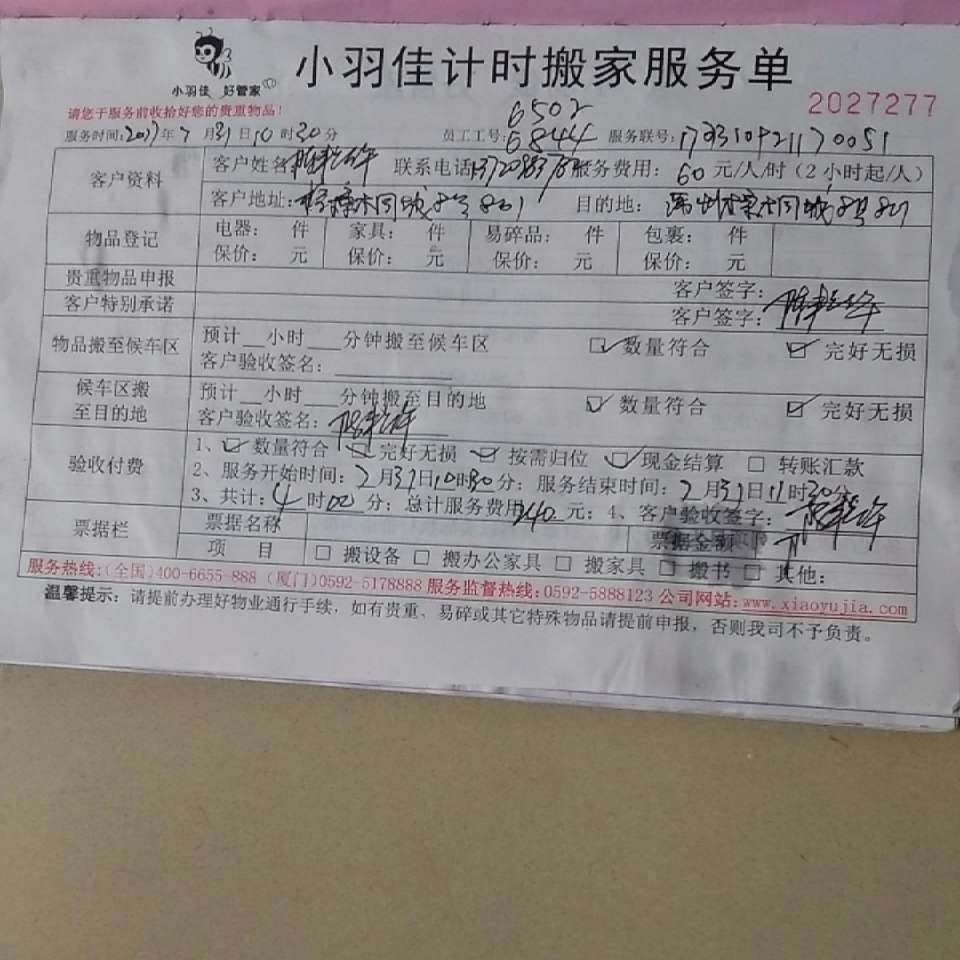 小羽佳计时搬家服务单
小羽佳 好管家
2027277
请您于服务前收拾好您的贵重物品!
6502
服务时间:2017年7月31日10时30分 员工工号:6844 服务联号:
客户资料 客户姓名: 联系电话: 服务费用:60元/人/时(2小时起/人)
客户地址: 目的地:
物品登记 电器: 件 家具: 件 易碎品: 件 包裹: 件
保价: 元 保价: 元 保价: 元 保价: 元
贵重物品申报 客户签字:
客户特别承诺 客户签字:
物品搬至候车区 预计__小时___分钟搬至候车区 ☑数量符合 ☑完好无损
客户验收签名:
候车区搬至目的地 预计__小时___分钟搬至目的地 ☑数量符合 ☑完好无损
客户验收签名:
验收付费 1、☑数量符合 ☑完好无损 ☑按需归位 ☑现金结算 □转账汇款
2、服务开始时间:7月31日10时30分;服务结束时间:7月31日11时30分
3、共计:4时00分;总计服务费用240元;4、客户验收签字:
票据栏 票据名称 票据金额
项 目 □搬设备 □搬办公家具 □搬家具 □搬书 □其他:
服务热线:(全国)400-6655-888 (厦门)0592-5178888 服务监督热线:0592-5888123 公司网站:www.xiaoyujia.com
温馨提示:请提前办理好物业通行手续,如有贵重、易碎或其它特殊物品请提前申报,否则我司不予负责。